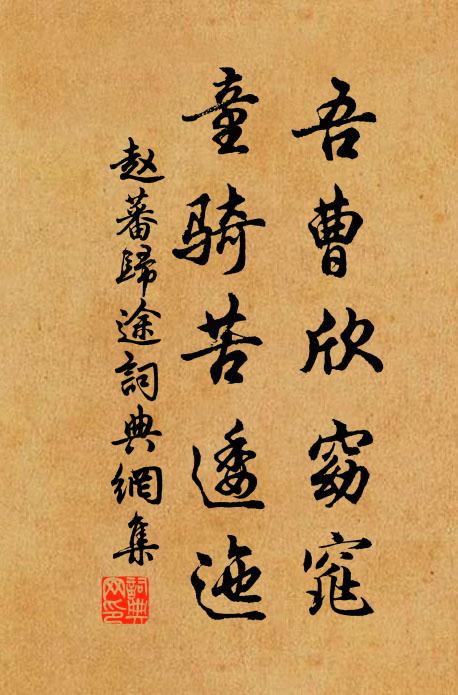 吾曹欣窈窕
童骑苦逶迤
赵蕃歸途詞典網集
詞典
网印